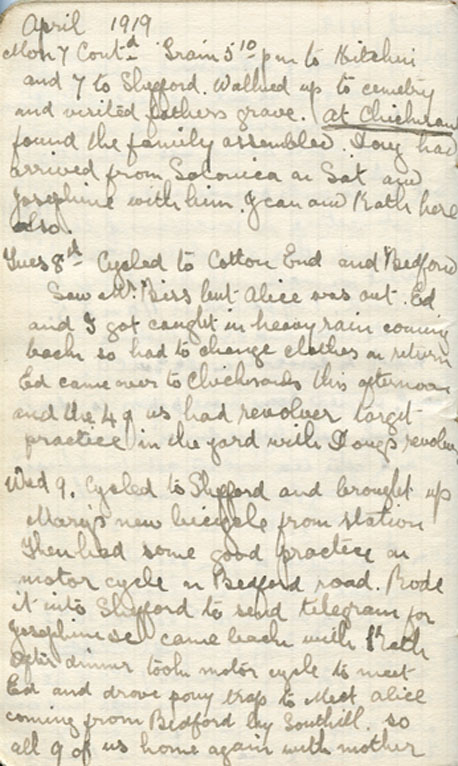 April 1919
Mon 7 Contd Train 5 10 pm to Hitchin
and 7 to Shefford. Walked up to cemetry
and visited fathers grave. (At Chicksan
found the family assembled. Doug had
arrived from Salonica on Sat and
Josephine with him. Jean and Kath here
also.
Tues 8th Cycled to Cotton End and Bedford
Saw Mr. Biss but Alice was out. Ed
and I got caught in heavy rain coming
back so had to change clothes on return
Ed came over to Chicksands this afternoon
and the 4 of us had revolver target
practice in the yard with Dougs revolver
Wed 9. Cycled to Shefford and brought up
Mary's new bicycle from station
Then had some good practice on
motor cycle on Bedford road. Rode
it into Shefford to send telegram for
Josephine & came back with Kath
After dinner took motor cycle to meet
Ed and drove pony trap to meet Alice
coming from Bedford by Southill. so
all 9 of us home again with mother